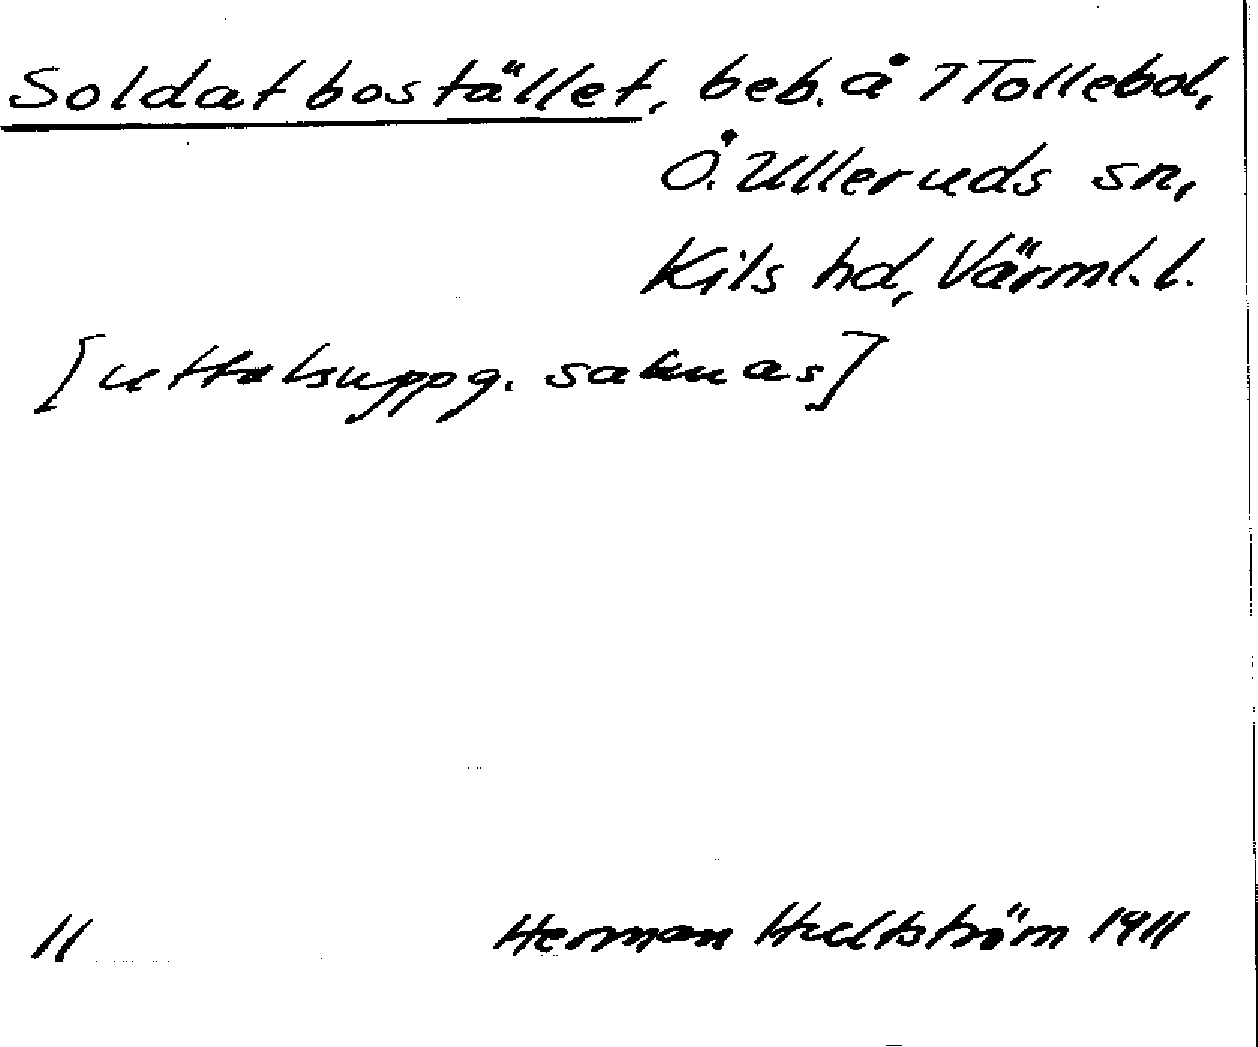 Soldatbostället, beb. å 7 Tollebol,
Ö. Ulleruds sn,
Kils hd, Värml. l.
[uttalsuppg. saknas]
11 Herman Hultström 1911